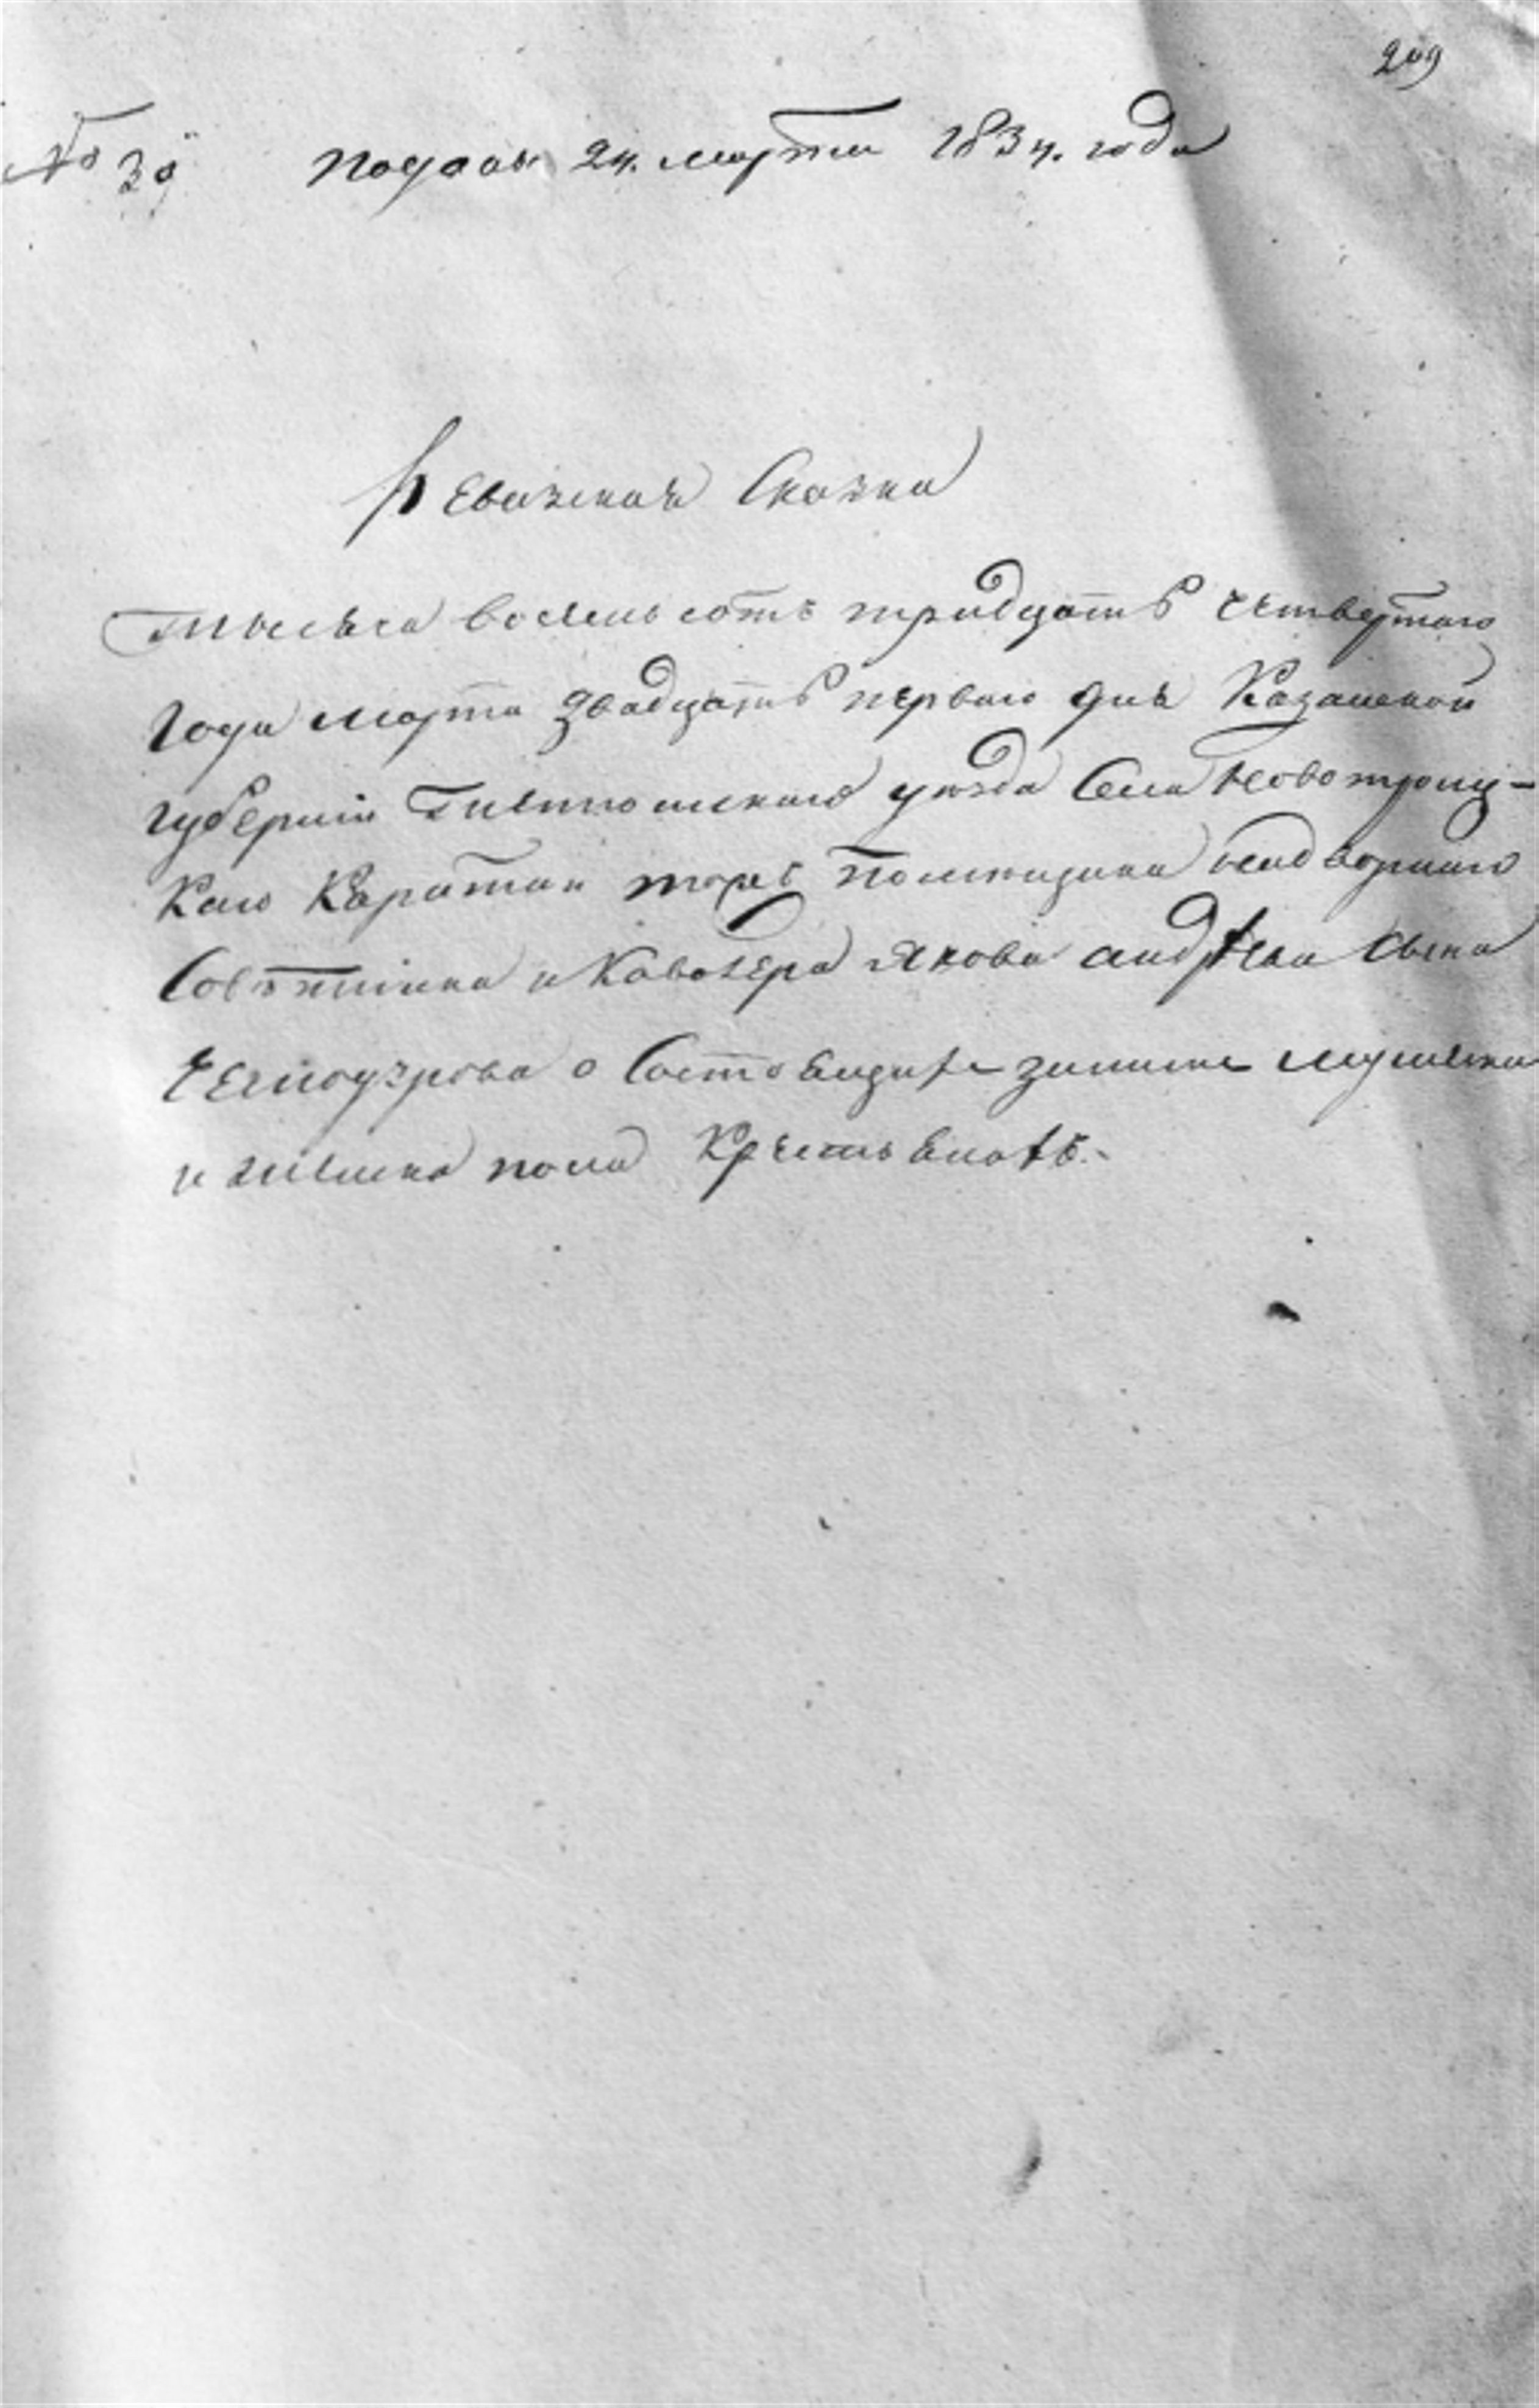 209
№ 39 подана 24. марта 1834. года
Ревижская Сказка
тысяча восемь сотъ тридцать четвертаго
Года марта двадцать перваго дня Казанской
губерніи уезда Села Новотроиц-
каго тожъ помещика надворнаго
Советника и Кавалера Якова андреева сына
о Состоящихъ за ними мужеска
и женска пола Крестьянахъ.